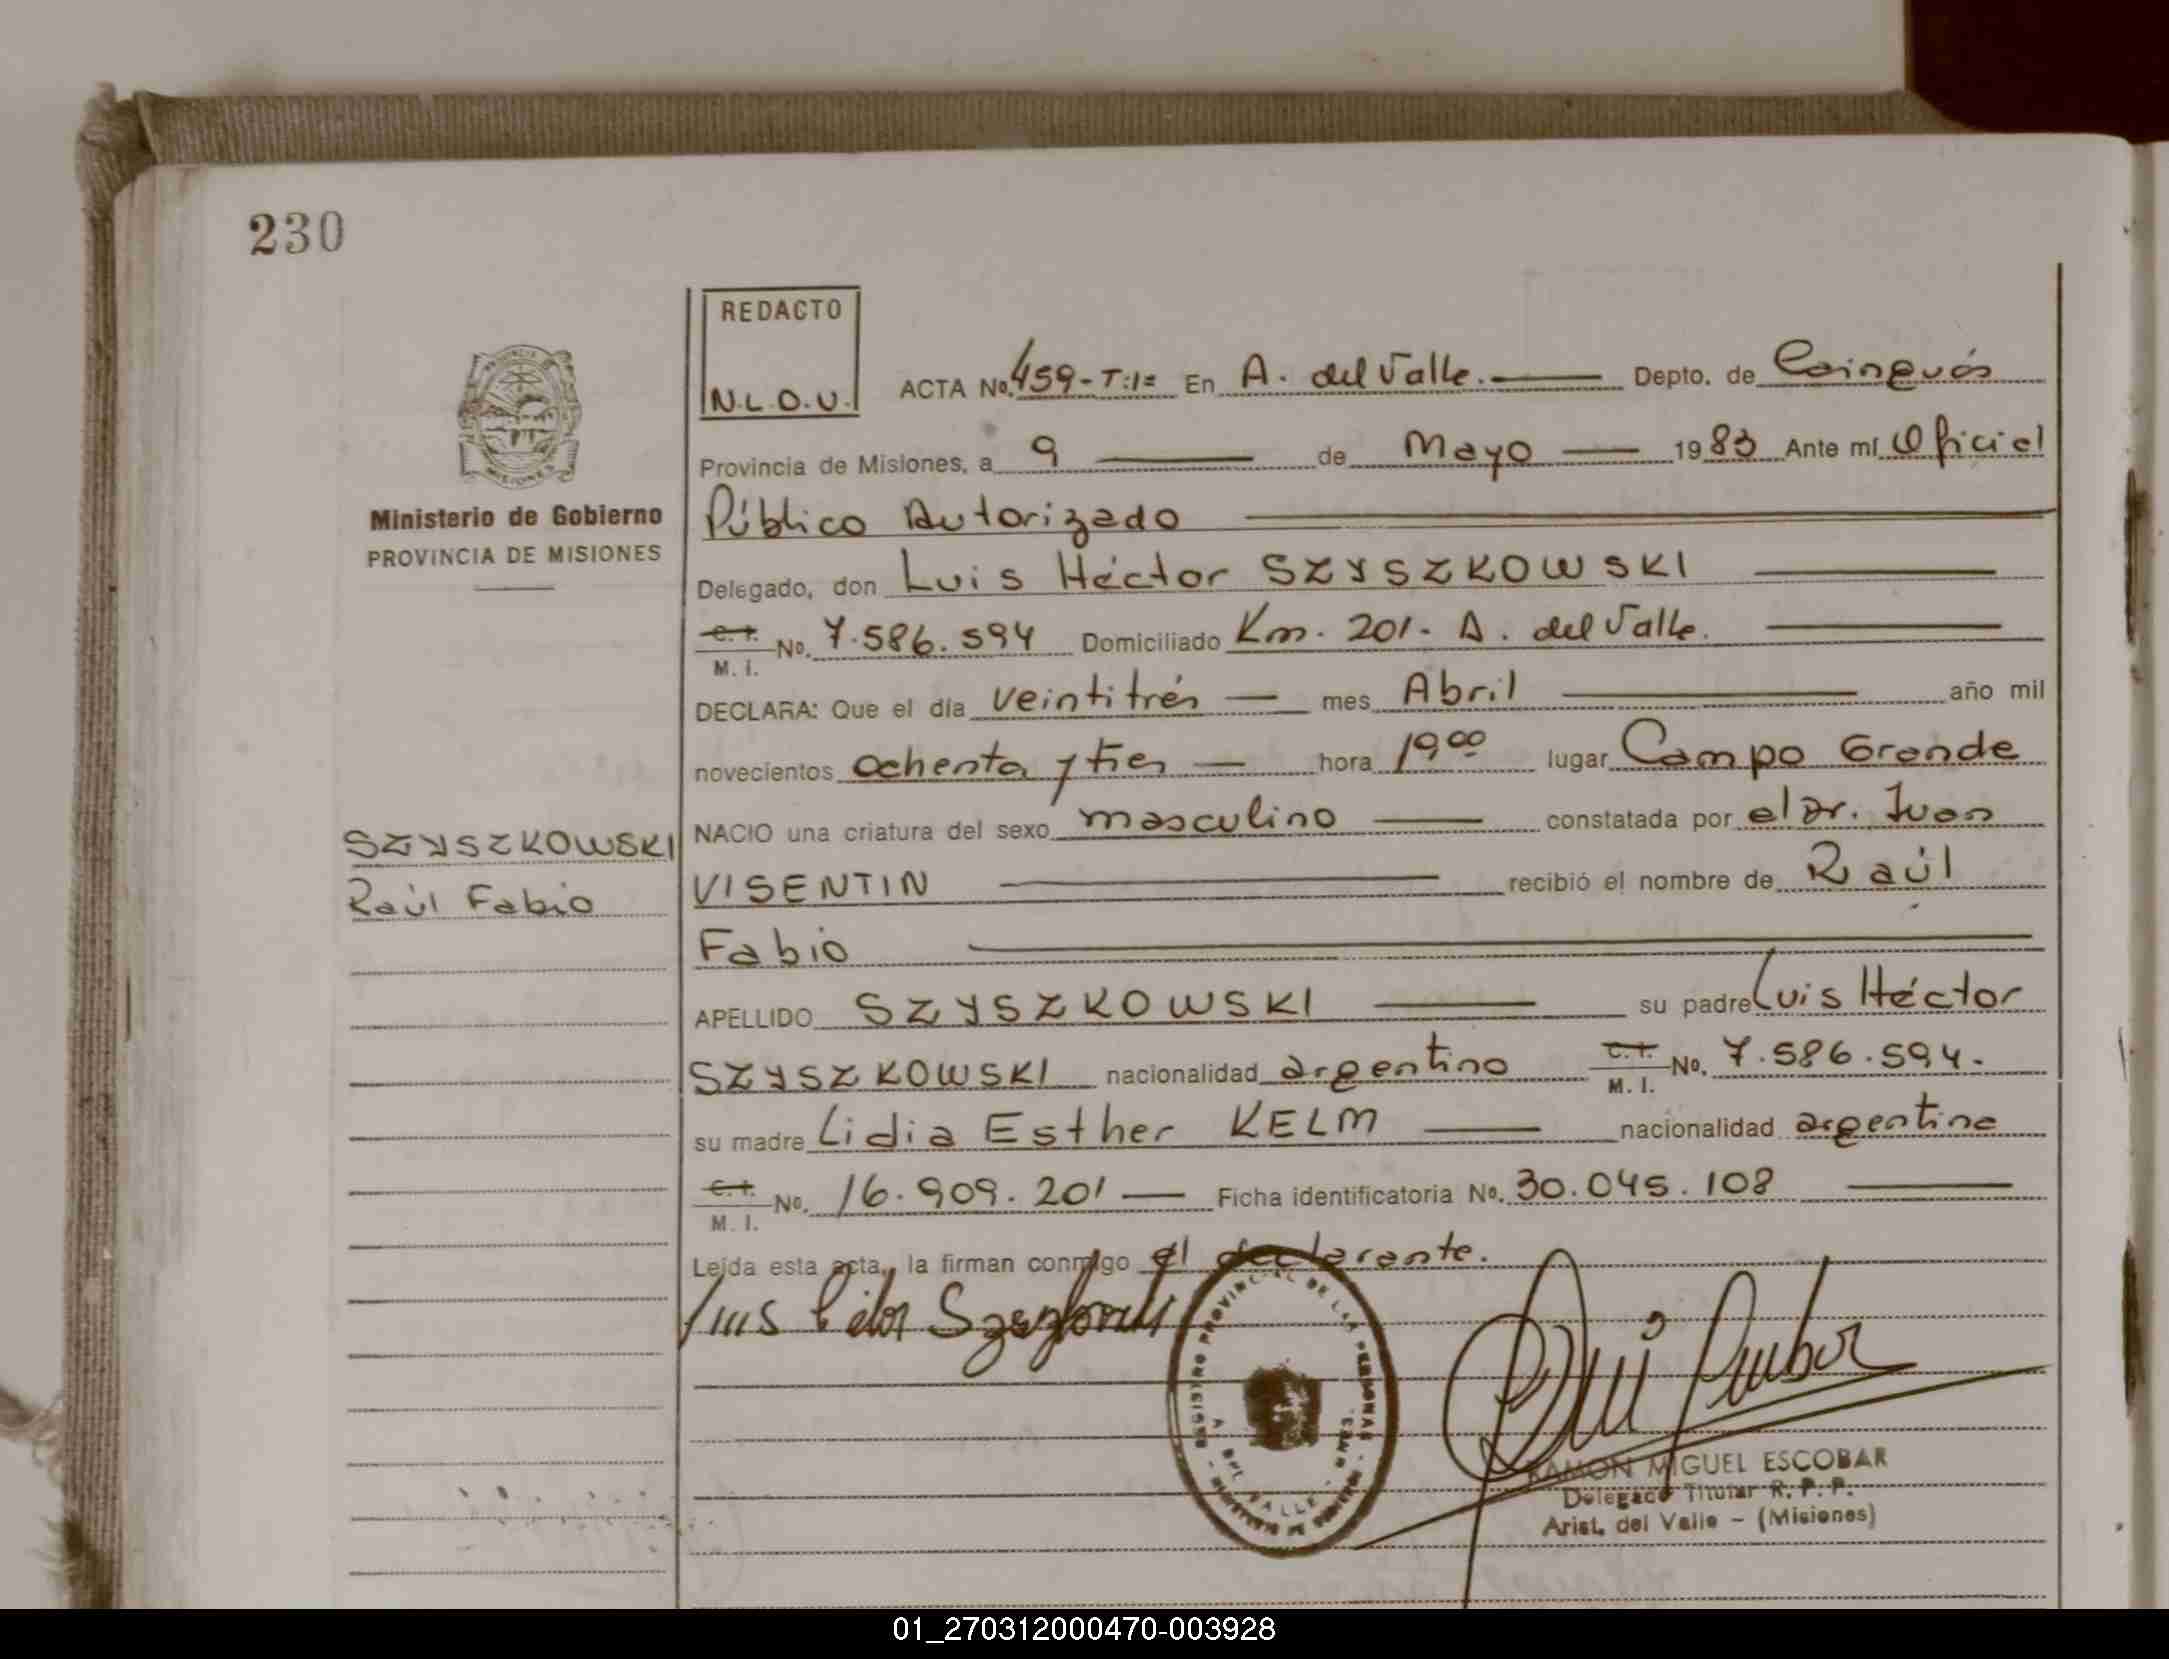 230
REDACTO
N.L.O.U.
ACTA No. 459-T:1= En A. del Valle. Depto. de Cainguás
Provincia de Misiones, a 9 de Mayo 1983 Ante mí Oficial
Ministerio de Gobierno
PROVINCIA DE MISIONES
Público Autorizado
Delegado, don Luis Héctor SZYSZKOWSKI
C. I. M. I. No. 7.586.594 Domiciliado Km. 201. A. del Valle.
DECLARA: Que el día veintitrés mes Abril año mil
novecientos ochenta y tres hora 19 00 lugar Campo Grande
SZYSZKOWSKI
Raúl Fabio
NACIO una criatura del sexo masculino constatada por el Dr. Juan
VISENTIN recibió el nombre de Raúl
Fabio
APELLIDO SZYSZKOWSKI su padre Luis Héctor
SZYSZKOWSKI nacionalidad argentino C. I. M. I. No. 7.586.594.
su madre Lidia Esther KELM nacionalidad argentina
C. I. M. I. No. 16.909.201 Ficha identificatoria No. 30.045.108
Leída esta acta, la firman conmigo el declarante.
RAMON MIGUEL ESCOBAR
Delegado Titular R. P. P.
Arist. del Valle - (Misiones)
01_270312000470-003928